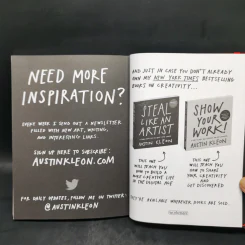 NEED MORE
INSPIRATION?
EVERY WEEK I SEND OUT A NEWSLETTER
FILLED WITH NEW ART, WRITING,
AND INTERESTING LINKS.
SIGN UP HERE TO SUBSCRIBE:
AUSTINKLEON.COM
FOR DAILY UPDATES, FOLLOW ME ON TWITTER:
@AUSTINKLEON
AND JUST IN CASE YOU DON'T ALREADY
OWN MY NEW YORK TIMES BESTSELLING
BOOKS ON CREATIVITY...
STEAL
LIKE AN
ARTIST
AUSTIN KLEON
SHOW
YOUR
WORK!
AUSTIN KLEON
THIS ONE
WILL TEACH YOU
HOW TO BUILD A
MORE CREATIVE LIFE
IN THE DIGITAL AGE
THIS ONE
WILL TEACH YOU
HOW TO SHARE
YOUR CREATIVITY
AND
GET DISCOVERED
THEY'RE AVAILABLE WHEREVER BOOKS ARE SOLD.